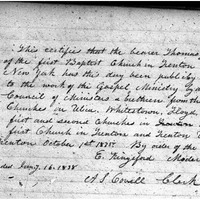 This certifies that the bearer Thomas
of the first Baptist Church in Trenton
New York has this day been publicly
to the work of the Gospel Ministry by a
Council of Ministers & brethren from the
Churches in Utica, Whitestown, Floyd
first and second Churches in
first Church in Trenton and Trenton
Trenton October 1st 1835 By order of the
E. Kingsford Moder
ded Jany. 16. 1838
A. S. Covell Clerk